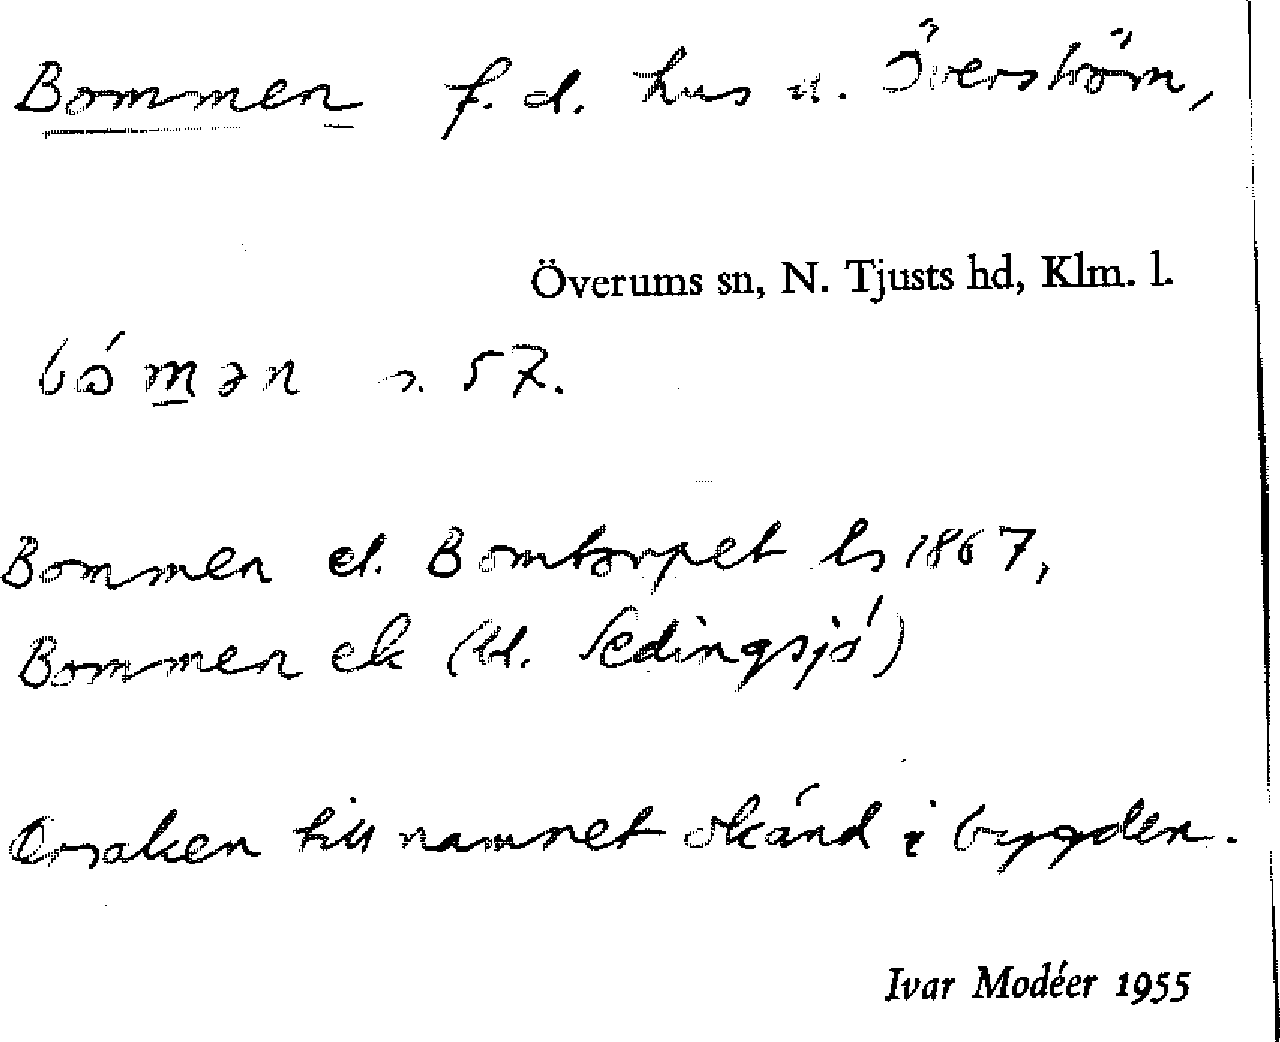 Bommen f. d. hus u. Överström,
Överums sn, N. Tjusts hd, Klm. l.
bǻmən s. 57.
Bommen el. Bomtorpet hs 1867,
Bommen ek (bl. Sedingsjö)
Orsaken till namnet okänd i bygden.
Ivar Modéer 1955